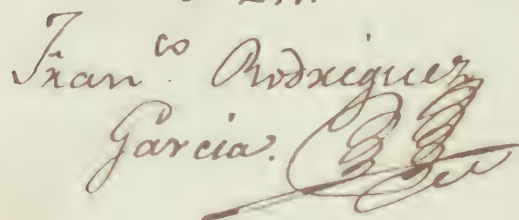 Fran.co Rodriguez
Garcia.